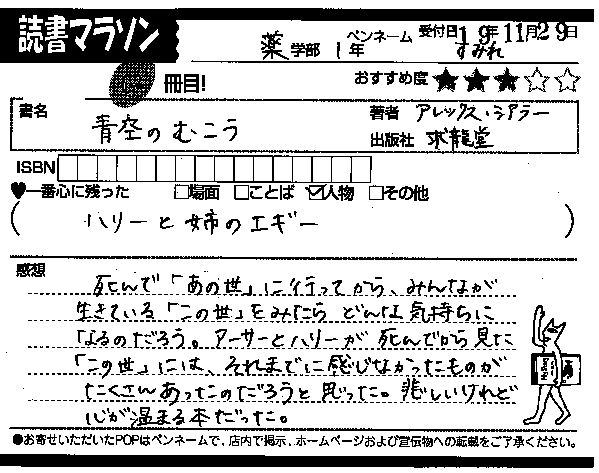 読書マラソン
薬学部 1年 ペンネーム すみれ 受付日19年11月29日
冊目!
おすすめ度★★★☆☆
書名 青空のむこう
著者 アレックス・シアラー
出版社 求龍堂
ISBN
♥一番心に残った □場面 □ことば ☑人物 □その他
(ハリーと姉のエギー)
感想
死んで「あの世」に行ってから、みんなが
生きている「この世」をみたら どんな気持ちに
なるのだろう。アーサーとハリーが 死んでから見た
「この世」には、それまでに感じなかったものが
たくさんあったのだろうと思った。悲しいけれど
心が温まる本だった。
●お寄せいただいたPOPはペンネームで、店内で掲示、ホームページおよび宣伝物への転載をご了承ください。